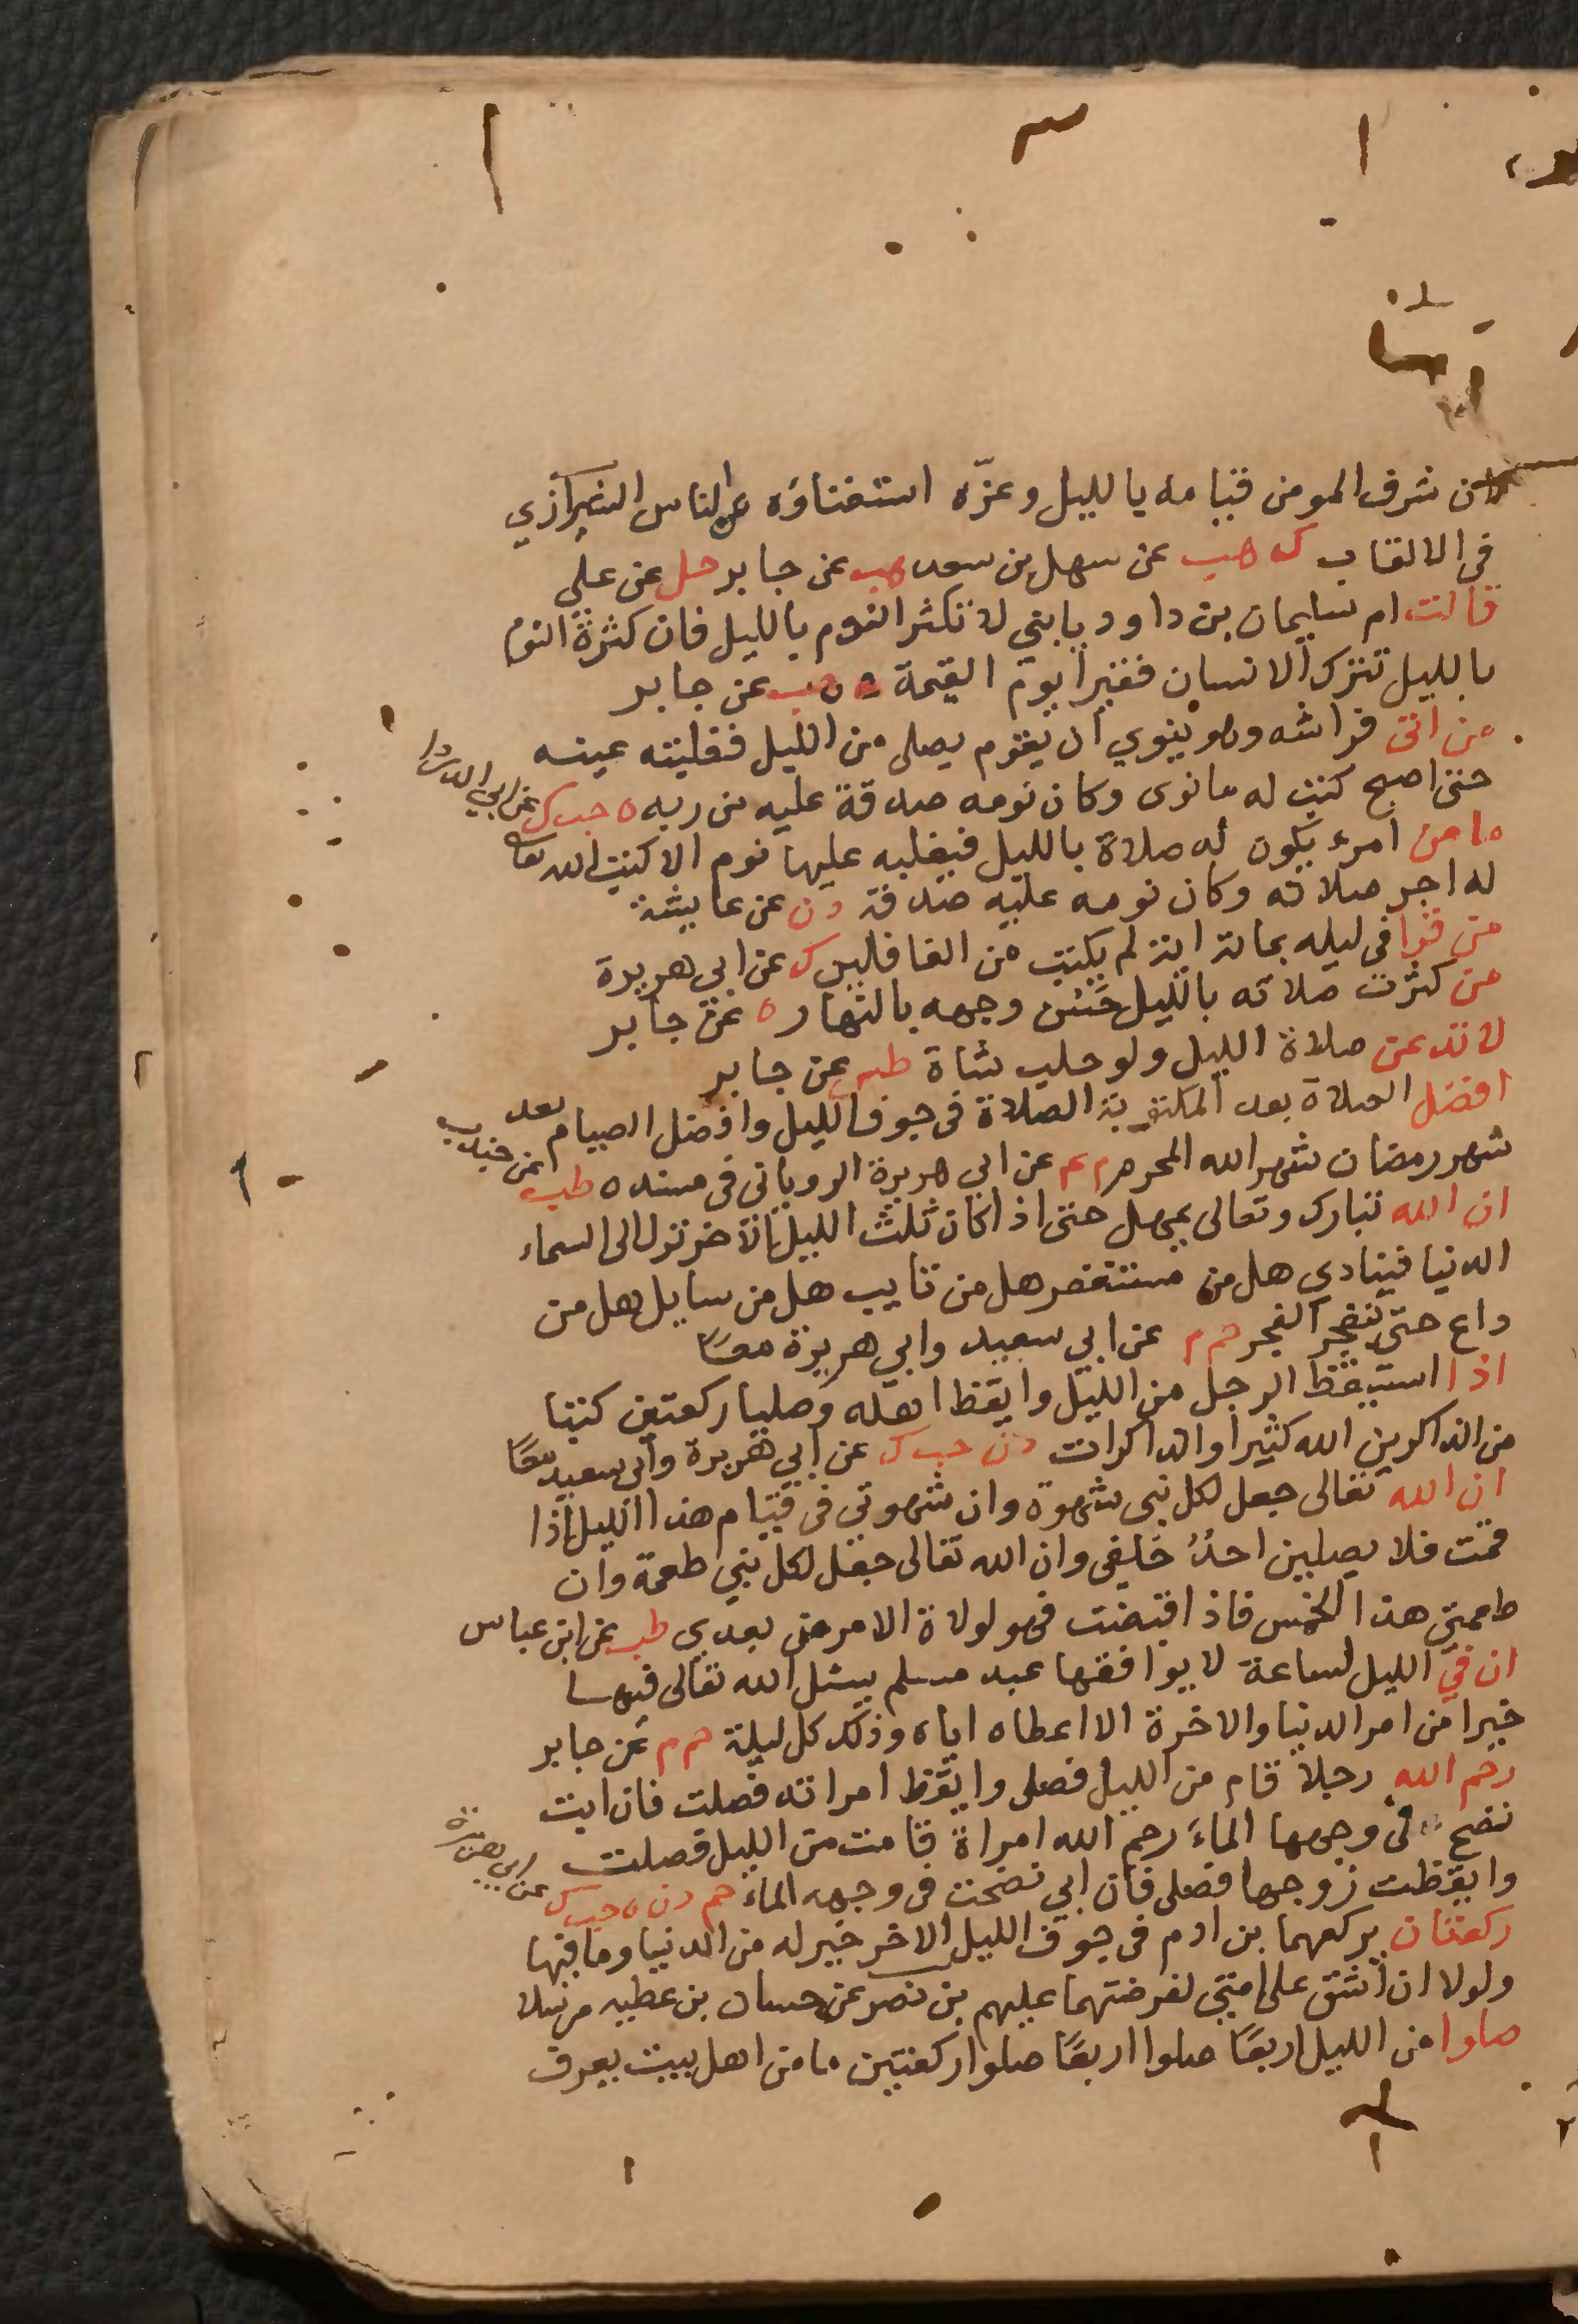 ان شرف المومن قيامه بالليل وعزّه استغناؤه عن الناس الشيرازي
فى الالقاب ك هب عن سهل بن سعد هب عن جابر حل عن علي
قالت ام سليمان بن داود يا بني لا تكثر النوم بالليل فان كثرة النوم
بالليل تترك الانسان فقيرا يوم القيمة ه ن هب عن جابر
من اتى فراشه وهو ينوي ان يقوم يصلى من الليل فغلبته عينه
حتى اصبح كتب له ما نوى وكان نومه صدقة عليه من ربه ن ه حب ك عن ابي الدردا
ما من امرء يكون له صلاة بالليل فيغلبه عليها نوم الا كتب الله تعا
له اجر صلاته وكان نومه عليه صدقة د ن عن عايشة
من قرا فى ليله بمائة اية لم يكتب من الغافلين ك عن ابى هريرة
من كثرت صلاته بالليل حَسُن وجهه بالنهار ه عن جابر
لا تدعن صلاة الليل ولو حلب شاة طس عن جابر
افضل الصلاة بعد المكتوبة الصلاة فى جوف الليل وافضل الصيام بعد
شهر رمضان شهر الله المحرم م عم عن ابى هريرة الرويانى فى مسنده طب عن جندب
ان الله تبارك وتعالى يمهل حتى اذا كان ثلث الليل الاخر نزل الى السماء
الدنيا فينادي هل من مستغفر هل من تايب هل من سايل هل من
داع حتى ينفجر الفجر حم م عن ابي سعيد وابي هريرة معًا
اذا استيقظ الرجل من الليل وايقظ اهله وصليا ركعتين كتبا
من الذاكرين الله كثيرا والذاكرات د ن حب ك عن ابي هريرة وابي سعيد معًا
ان الله تعالى جعل لكل نبى شهوة وان شهوتي فى قيام هذا الليل اذا
قمت فلا يصلين احدٌ خلفى وان الله تعالى جعل لكل نبي طعمة وان
طعمتى هذا الخمس فاذا قبضت فهو لولاة الامر من بعدي طب عن ابن عباس
ان في الليل لساعة لا يوافقها عبد مسلم يسئل الله تعالى فيها
خيرا من امر الدنيا والاخرة الا اعطاه اياه وذلك كل ليلة حم م عن جابر
رحم الله رجلا قام من الليل فصلى وايقظ امراته فصلت فان ابت
نضح فى وجهها الماءَ رحم الله امراة قامت من الليل فصلت
وايقظت زوجها فصلى فان ابي نضحت فى وجهه الماءَ حم د ن ه حب ك عن ابي هريرة
ركعتان يركعهما بن ادم فى جوف الليل الاخر خير له من الدنيا وما فيها
ولولا ان اشق على امتي لفرضتهما عليهم بن نصر عن حسان بن عطيه مرسلا
صلوا من الليل اربعًا صلوا اربعًا صلوا ركعتين ما من اهل بيت يعرف